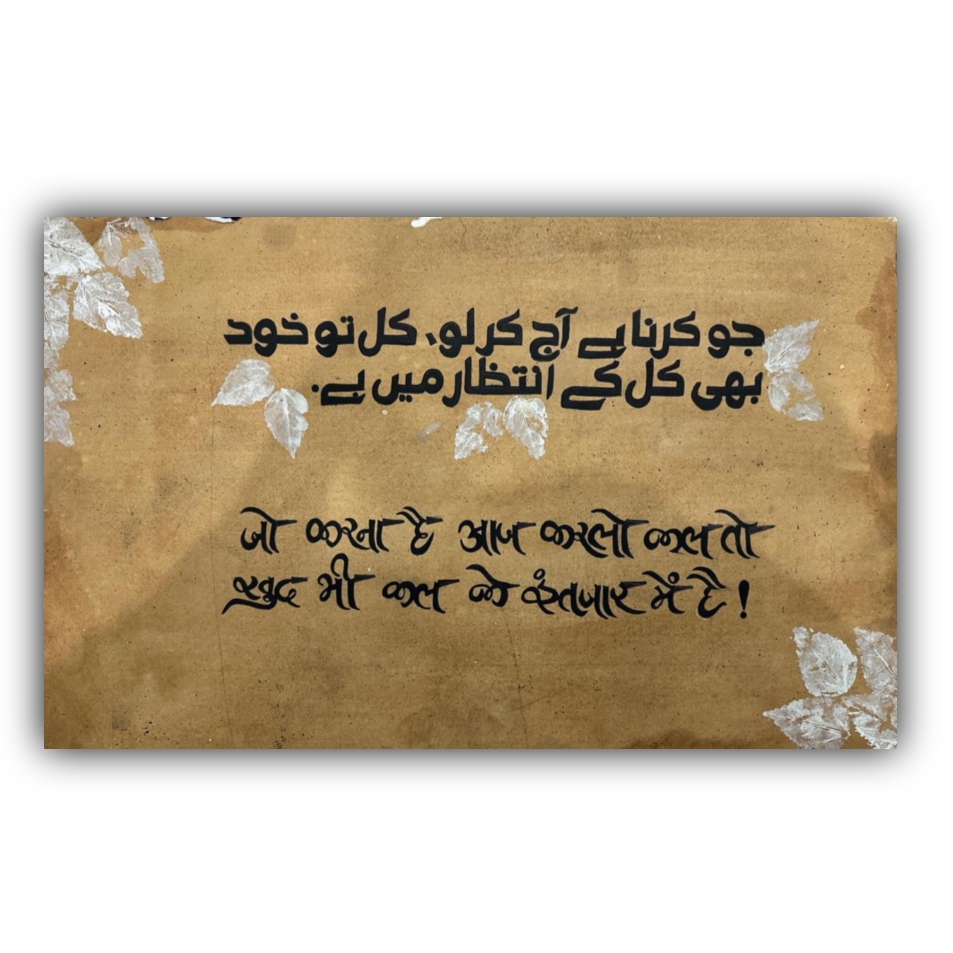 جو کرنا ہے آج کر لو، کل تو خود
بھی کل کے انتظار میں ہے.
जो करना है आज करलो कल तो
खुद भी कल के इंतजार में है!